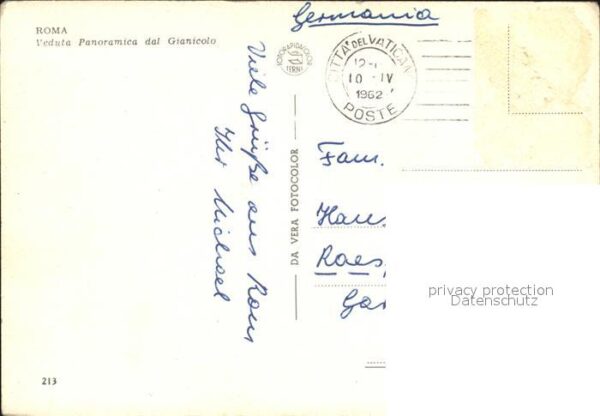 ROMA
Veduta Panoramica dal Gianicolo
Germania
CITTA' DEL VATICANO
12-
10 · IV
1962
POSTE
Viele Grüße aus Rom
Ihr Michael
DA VERA FOTOCOLOR
Fam.
Hans
Raes
privacy protection
Datenschutz
213